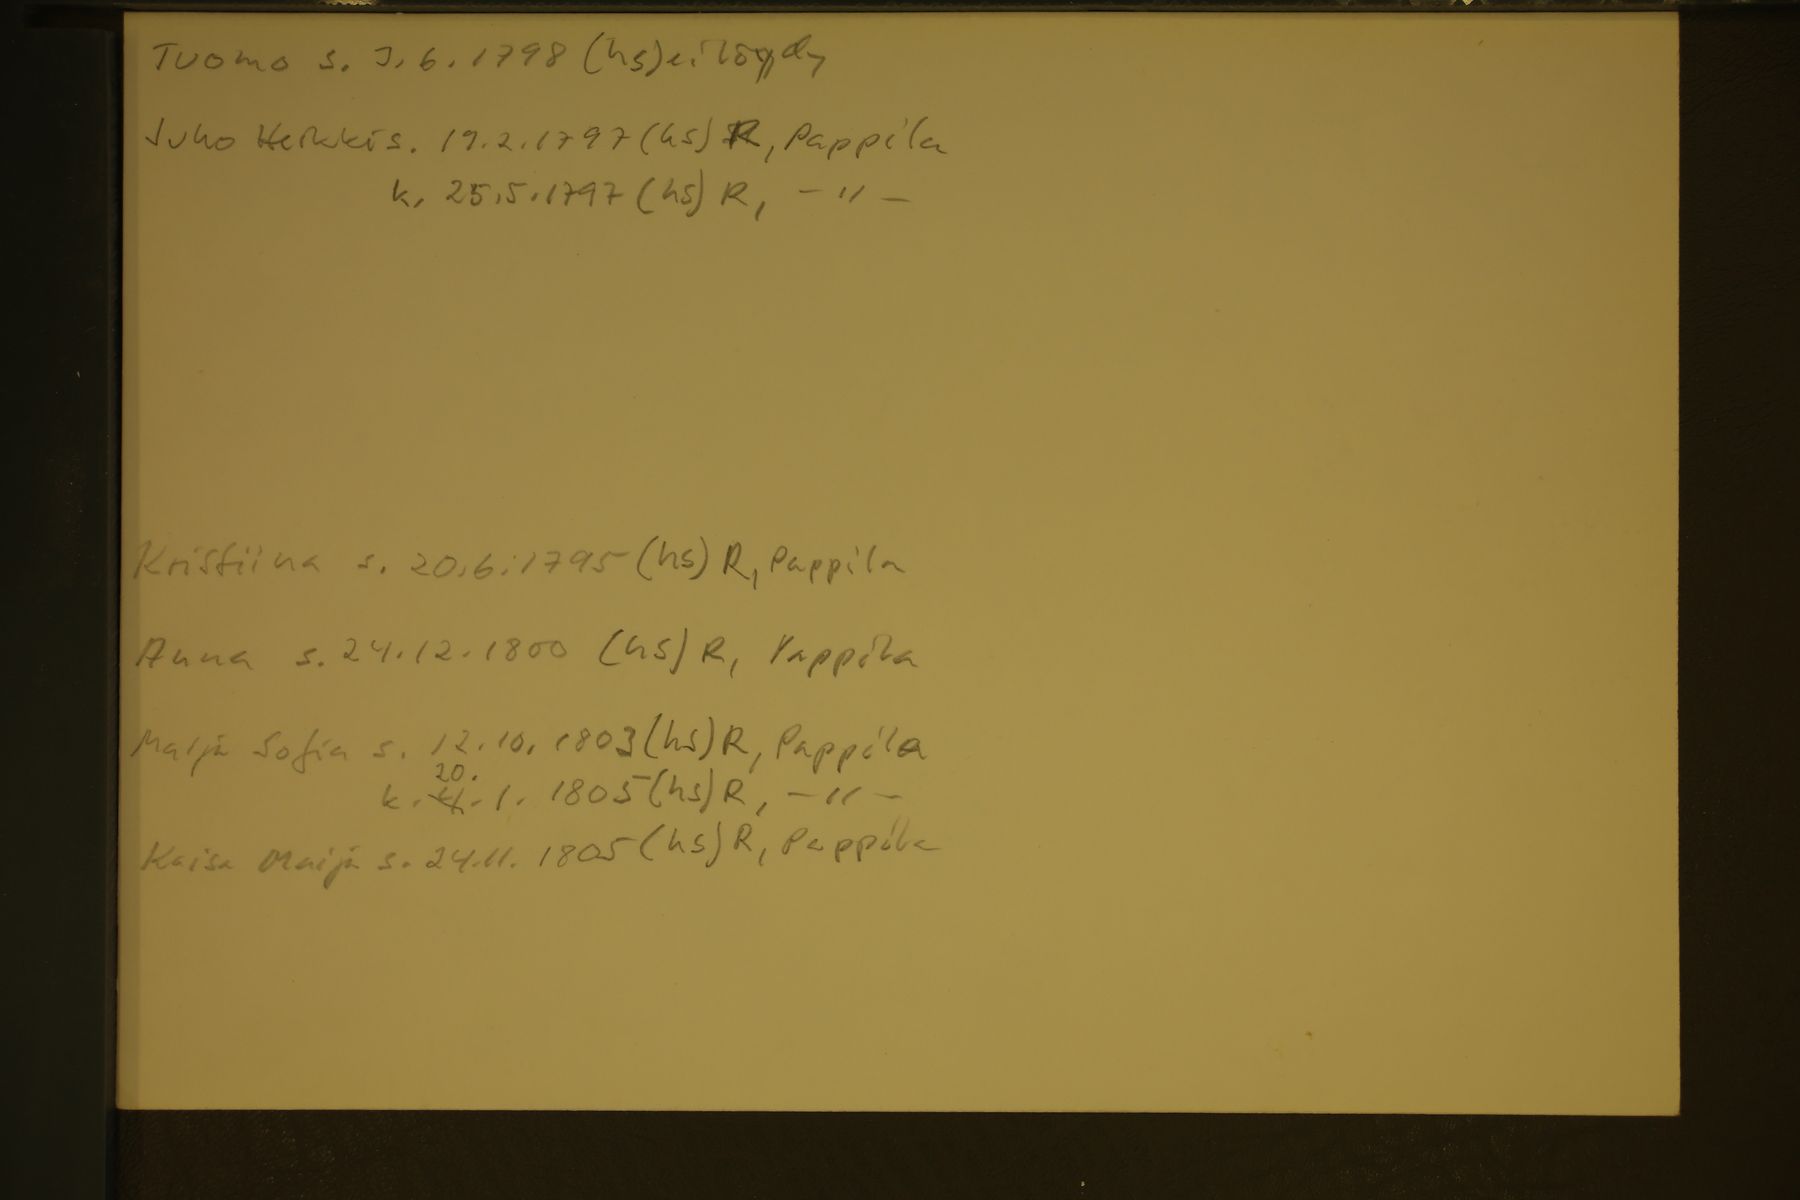 Tuomo s. 3.6.1798 (hs) ei löydy
Juho Heikki s. 19.2.1797 (hs) R, Pappila
k. 25.5.1797 (hs) R, -"-
Kristiina s. 20.6.1795 (hs) R, Pappila
Anna s. 24.12.1800 (hs) R, Pappila
Maija Sofia s. 12.10.1803 (hs) R, Pappila
20.
k. .1.1805 (hs) R, -"-
Kaisa Maija s. 24.11.1805 (hs) R, Pappila